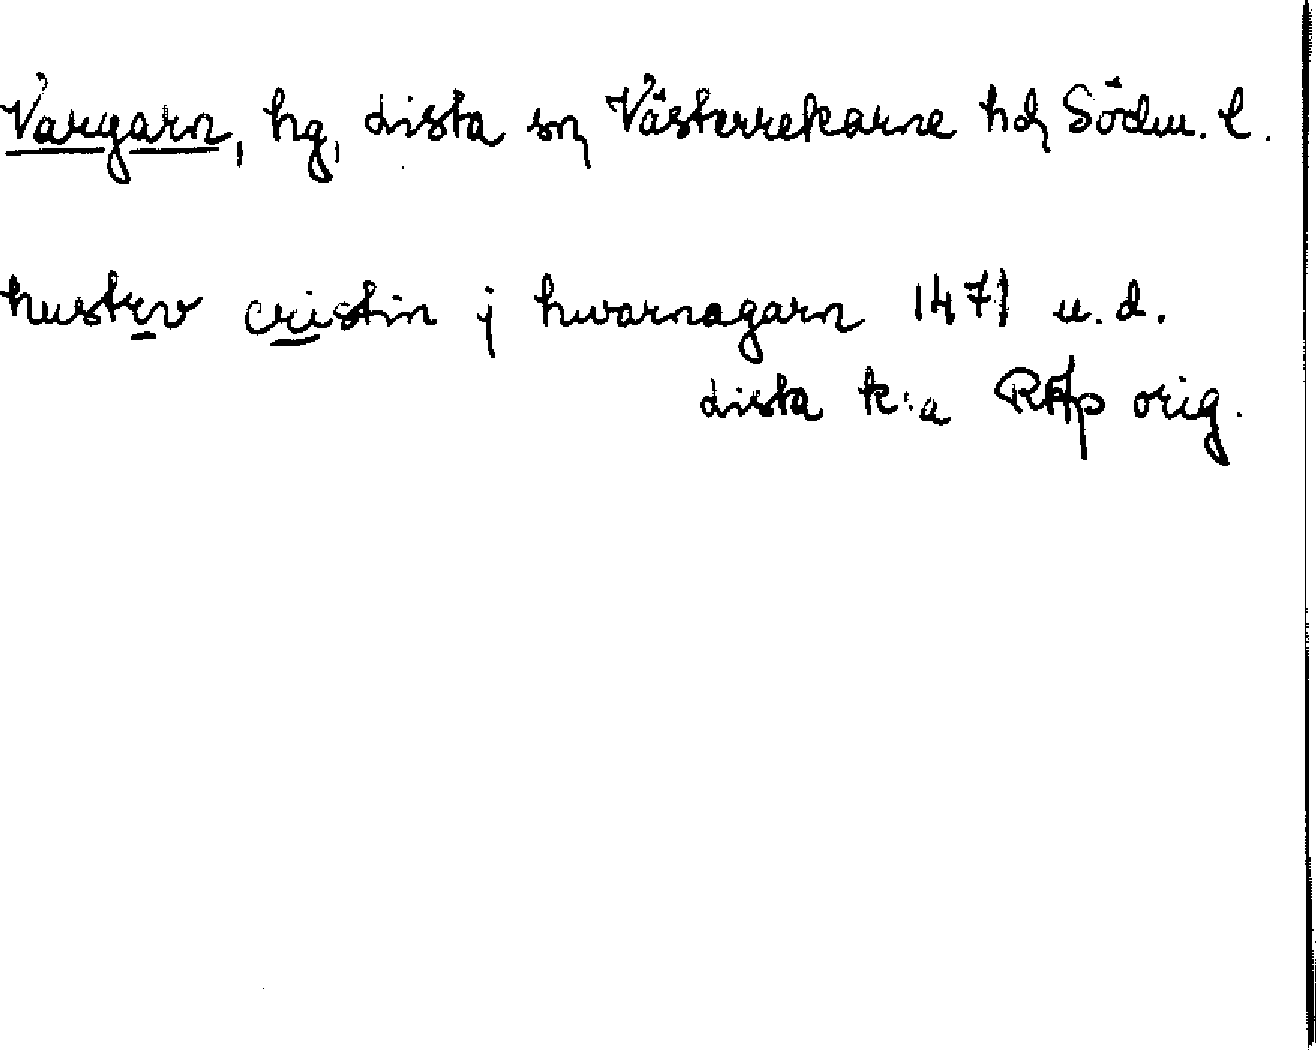 Vargarn, hg, Lista sn Västerrekarne hd Södm. l.
hustrv cristin j hwarnagarn 1471 u. d.
Lista k:a RAp orig.